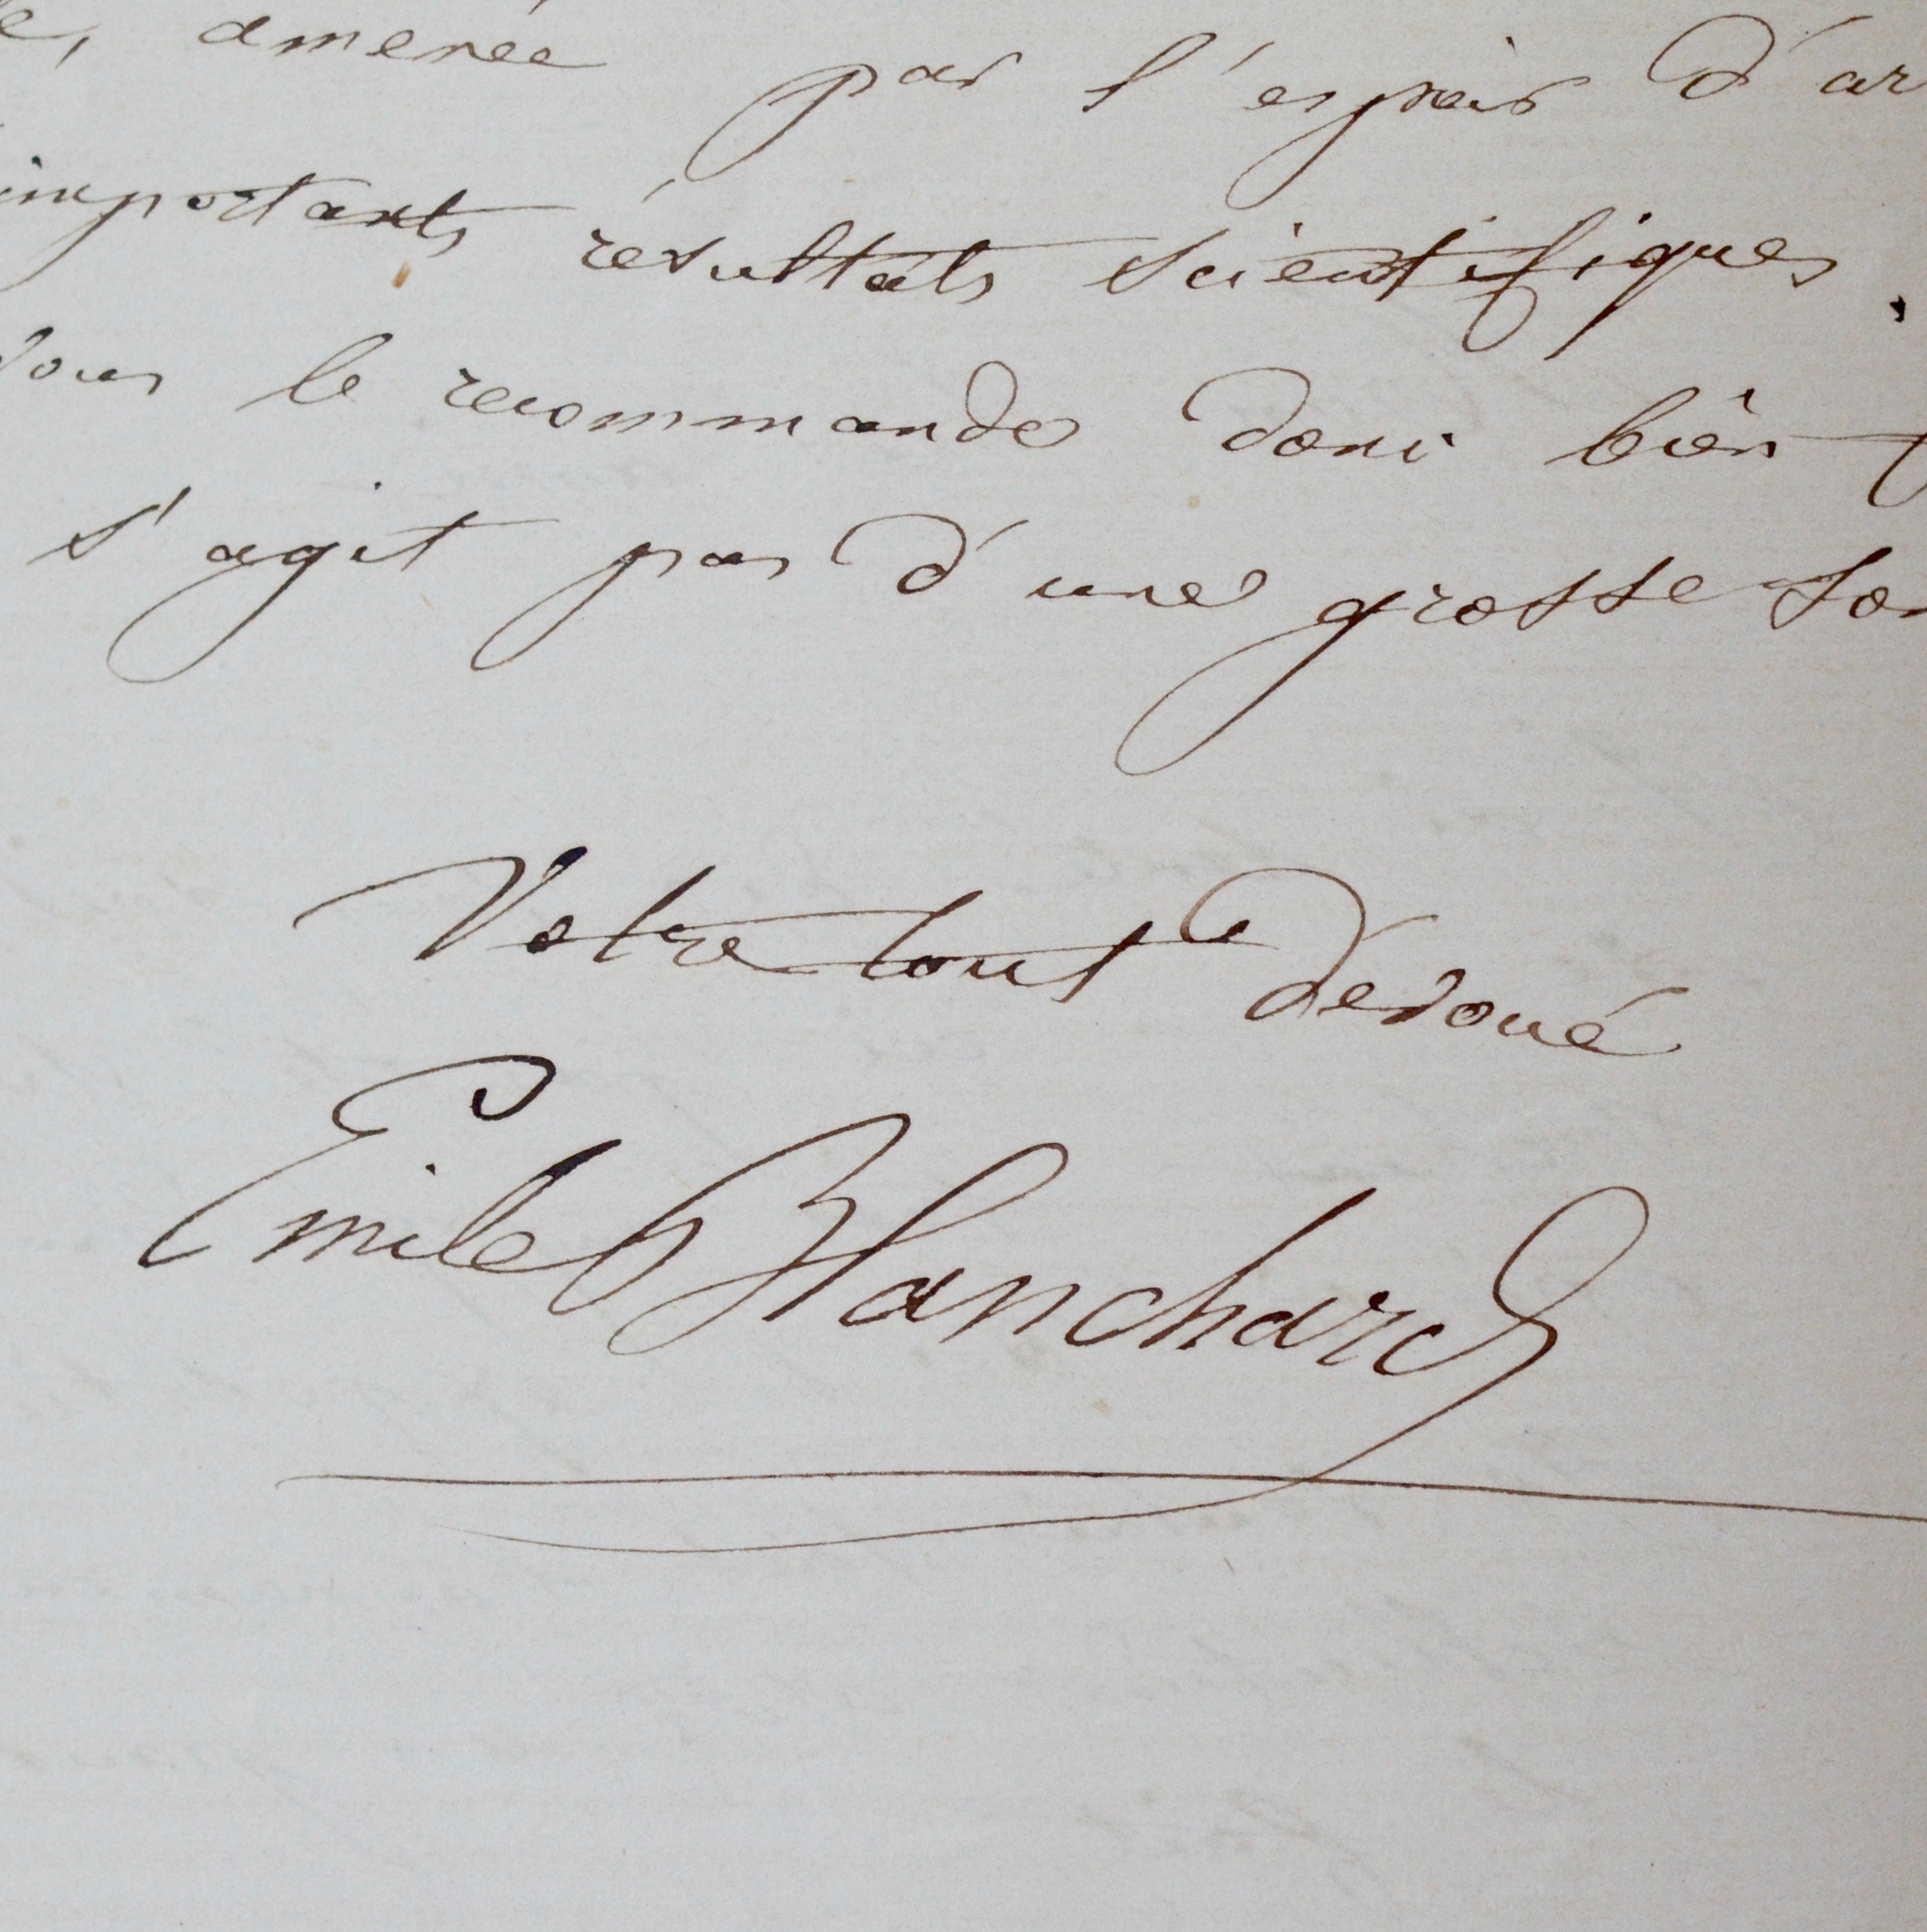 e, amenée par l'espoir d'ar
importants résultats scientifiques.
vous le recommande donc bien
s'agit pas d'une grosse som
Votre tout dévoué
Emile Blanchard